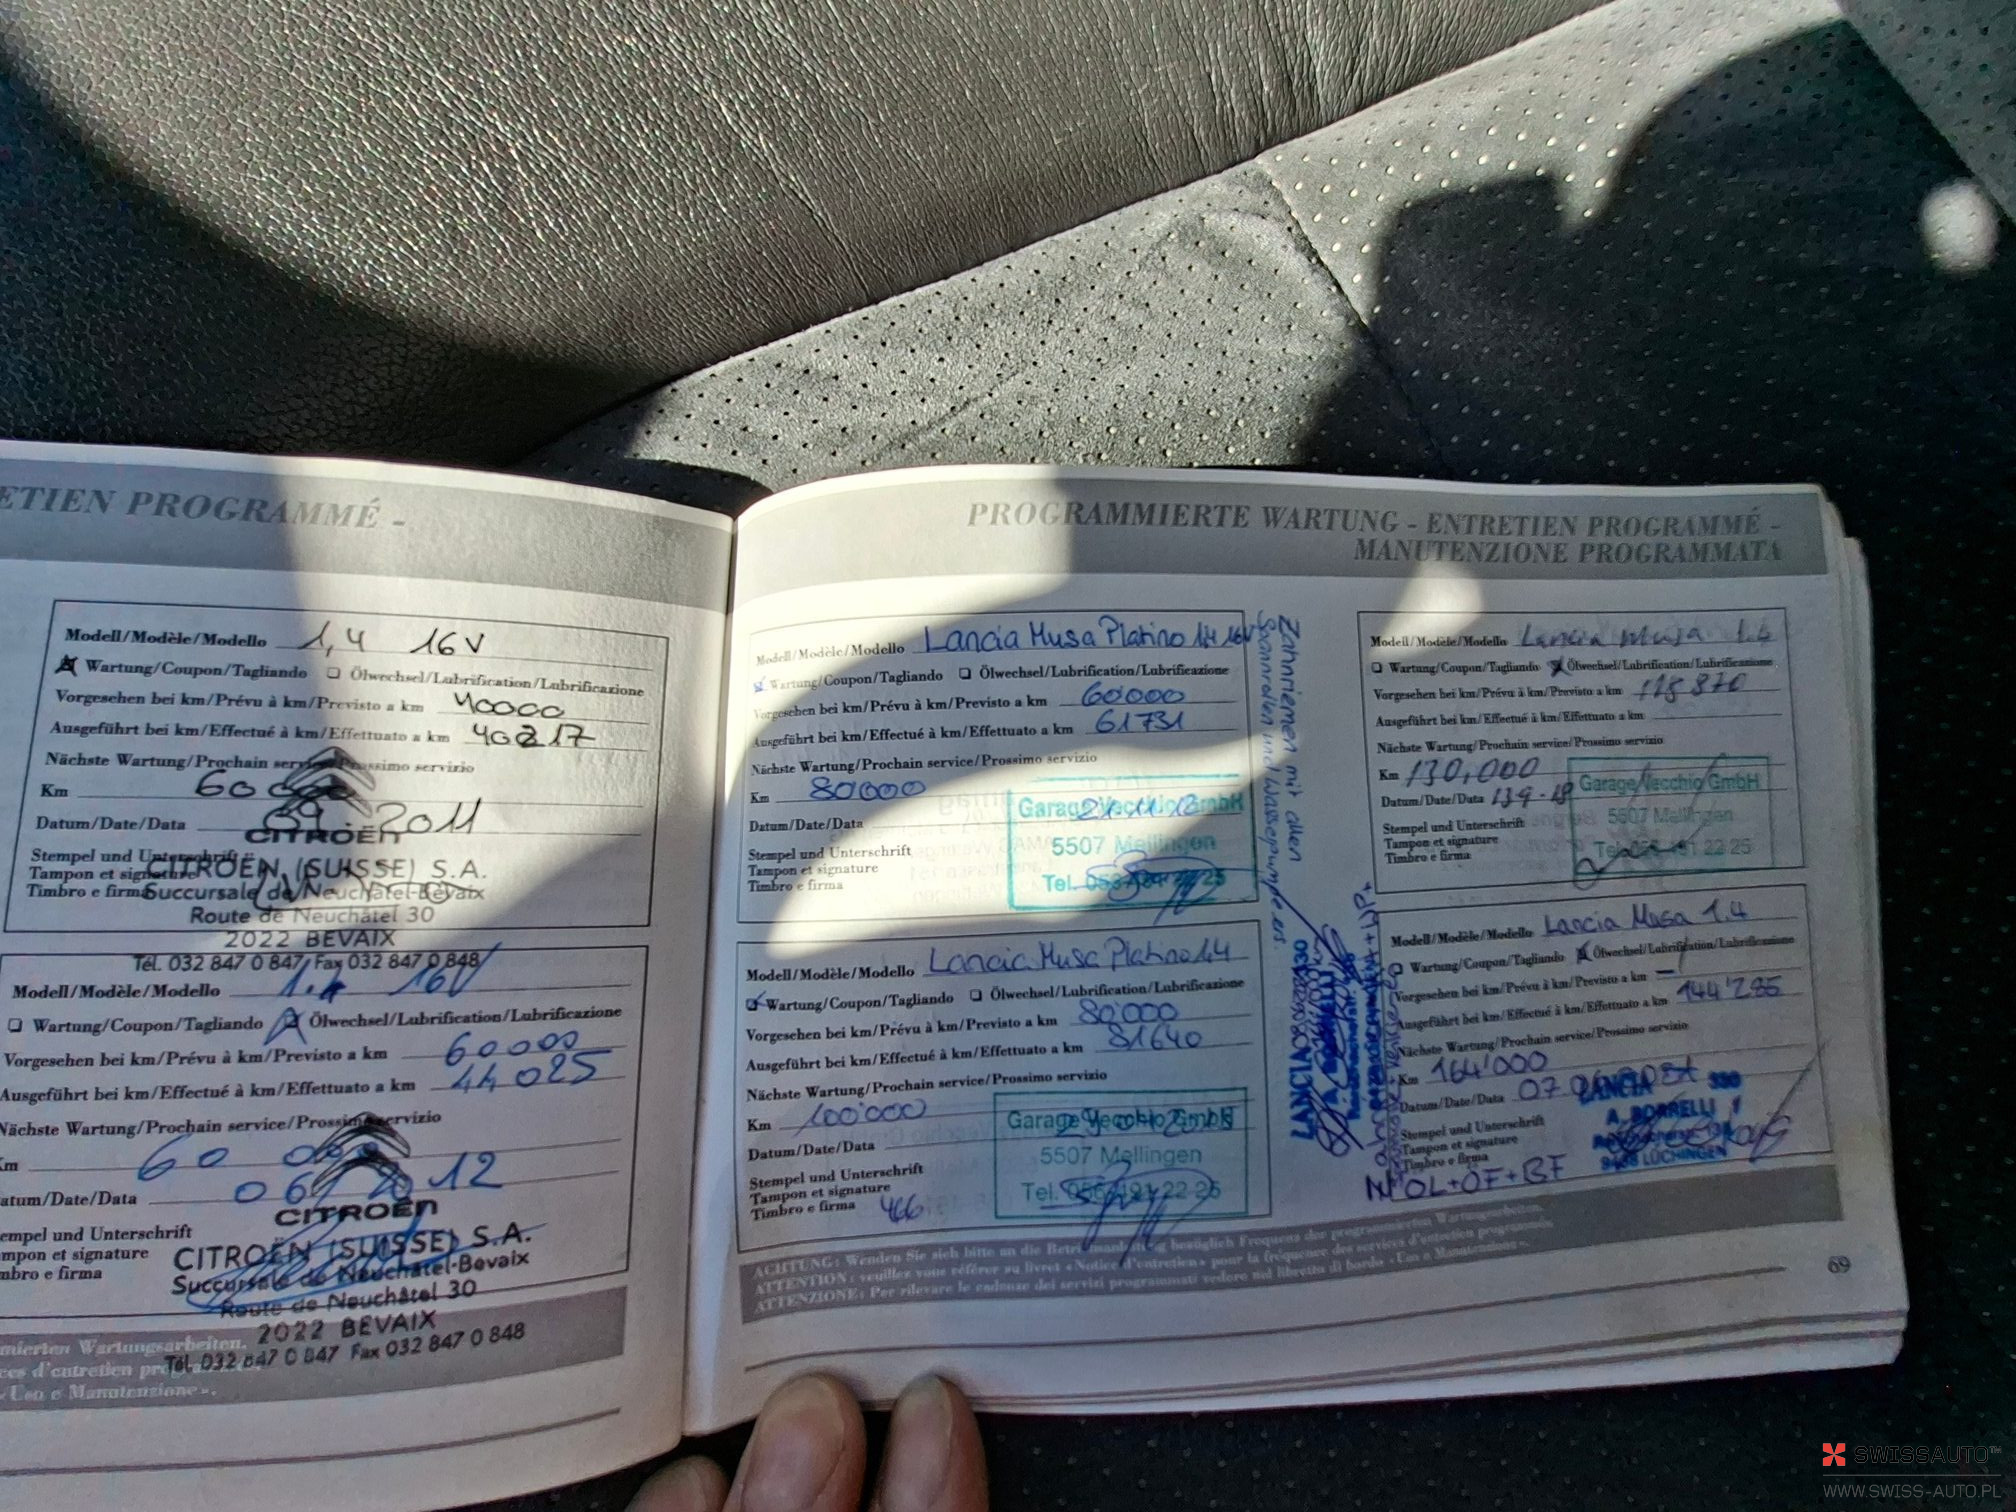 ETIEN PROGRAMMÉ -
Modell/Modèle/Modello 1,4 16V
Wartung/Coupon/Tagliando Ölwechsel/Lubrification/Lubrificazione
Vorgesehen bei km/Prévu à km/Previsto a km 40000
Ausgeführt bei km/Effectué à km/Effettuato a km 40217
Nächste Wartung/Prochain service/Prossimo servizio
Km 60000
Datum/Date/Data 2011
CITROËN
Stempel und Unterschrift
Tampon et signature
Timbro e firma
CITROËN (SUISSE) S.A.
Succursale de Neuchâtel-Bevaix
Route de Neuchâtel 30
2022 BEVAIX
Tél. 032 847 0 847 Fax 032 847 0 848
Modell/Modèle/Modello 1.4 16V
Wartung/Coupon/Tagliando Ölwechsel/Lubrification/Lubrificazione
Vorgesehen bei km/Prévu à km/Previsto a km 60000
Ausgeführt bei km/Effectué à km/Effettuato a km 44025
Nächste Wartung/Prochain service/Prossimo servizio
Km 60 000
Datum/Date/Data 12
CITROËN
empel und Unterschrift
mpon et signature
mbro e firma
CITROËN (SUISSE) S.A.
Succursale de Neuchâtel-Bevaix
Route de Neuchâtel 30
2022 BEVAIX
Tél. 032 847 0 847 Fax 032 847 0 848
mierten Wartungsarbeiten.
ces d'entretien
«Uso e Manutenzione».
PROGRAMMIERTE WARTUNG - ENTRETIEN PROGRAMMÉ -
MANUTENZIONE PROGRAMMATA
Modell/Modèle/Modello Lancia Musa Platino 1.4 16V
Wartung/Coupon/Tagliando Ölwechsel/Lubrification/Lubrificazione
Vorgesehen bei km/Prévu à km/Previsto a km 60000
Ausgeführt bei km/Effectué à km/Effettuato a km 61731
Nächste Wartung/Prochain service/Prossimo servizio
Km 80000
Datum/Date/Data
Stempel und Unterschrift
Tampon et signature
Timbro e firma
Garage Vecchio GmbH
5507 Mellingen
Zahnriemen mit allen
Spannrollen und Wasserpumpe ers.
Modell/Modèle/Modello Lancia Musa Platino 1.4
Wartung/Coupon/Tagliando Ölwechsel/Lubrification/Lubrificazione
Vorgesehen bei km/Prévu à km/Previsto a km 80'000
Ausgeführt bei km/Effectué à km/Effettuato a km 81640
Nächste Wartung/Prochain service/Prossimo servizio
Km 100'000
Datum/Date/Data
Stempel und Unterschrift
Tampon et signature
Timbro e firma
Garage Vecchio GmbH
5507 Mellingen
Tel. 056 491 22 25
LANCIA
Modell/Modèle/Modello Lancia Musa 1.4
Wartung/Coupon/Tagliando Ölwechsel/Lubrification/Lubrificazione
Vorgesehen bei km/Prévu à km/Previsto a km 118 870
Ausgeführt bei km/Effectué à km/Effettuato a km
Nächste Wartung/Prochain service/Prossimo servizio
Km 130,000
Datum/Date/Data
Stempel und Unterschrift
Tampon et signature
Timbro e firma
Garage Vecchio GmbH
5507 Mellingen
Tel. 056 491 22 25
Modell/Modèle/Modello Lancia Musa 1.4
Wartung/Coupon/Tagliando Ölwechsel/Lubrification/Lubrificazione
Vorgesehen bei km/Prévu à km/Previsto a km -
Ausgeführt bei km/Effectué à km/Effettuato a km 144'285
Nächste Wartung/Prochain service/Prossimo servizio
Km 164'000
Datum/Date/Data
Stempel und Unterschrift
Tampon et signature
Timbro e firma
LANCIA
A. BORRELLI
LÜCHINGEN
OL+ÖF+BF
ACHTUNG: Wenden Sie sich bitte an die Betriebsanleitung bezüglich Frequenz der programmierten Wartungsarbeiten.
ATTENTION: veuillez vous référer au livret «Notice d'entretien» pour la fréquence des services d'entretien programmés.
ATTENZIONE: Per rilevare le cadenze dei servizi programmati vedere nel libretto di bordo «Uso e Manutenzione».
69
SWISSAUTO™
WWW.SWISS-AUTO.PL